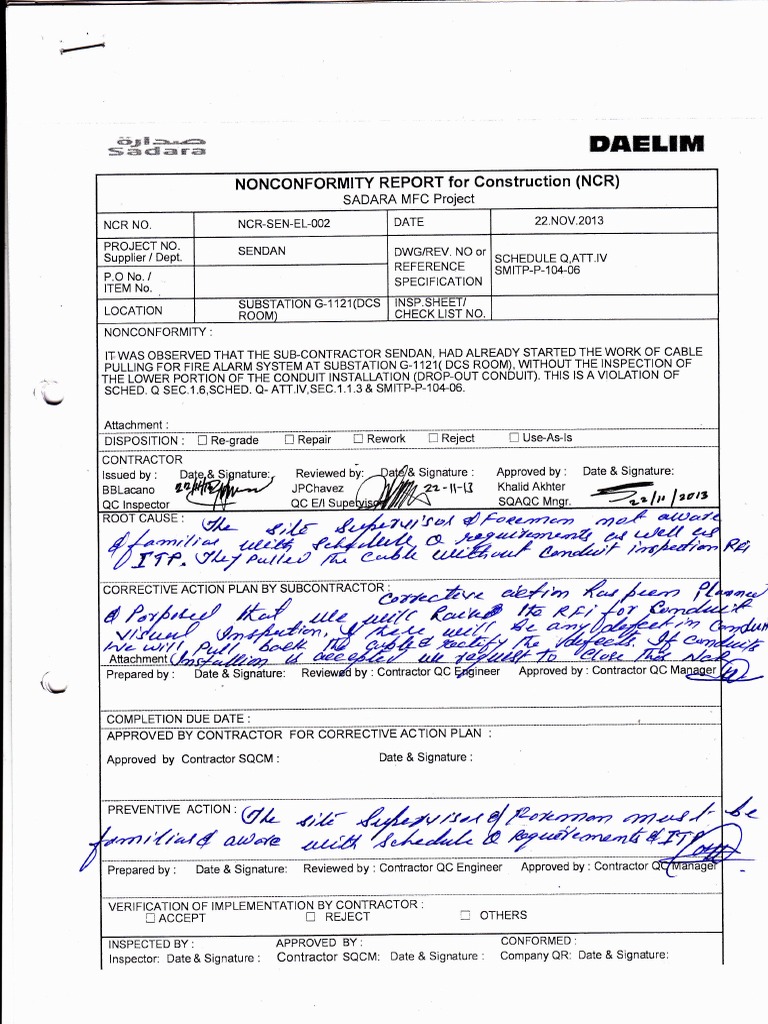 صدارة
Sadara
DAELIM
NONCONFORMITY REPORT for Construction (NCR)
SADARA MFC Project
NCR NO.
NCR-SEN-EL-002
DATE
22.NOV.2013
PROJECT NO.
Supplier / Dept.
SENDAN
DWG/REV. NO or
REFERENCE
SPECIFICATION
SCHEDULE Q,ATT.IV
SMITP-P-104-06
P.O No. /
ITEM No.
LOCATION
SUBSTATION G-1121(DCS
ROOM)
INSP.SHEET/
CHECK LIST NO.
NONCONFORMITY :
IT WAS OBSERVED THAT THE SUB-CONTRACTOR SENDAN, HAD ALREADY STARTED THE WORK OF CABLE
PULLING FOR FIRE ALARM SYSTEM AT SUBSTATION G-1121( DCS ROOM), WITHOUT THE INSPECTION OF
THE LOWER PORTION OF THE CONDUIT INSTALLATION (DROP-OUT CONDUIT). THIS IS A VIOLATION OF
SCHED. Q SEC.1.6,SCHED. Q- ATT.IV,SEC.1.1.3 & SMITP-P-104-06.
Attachment :
DISPOSITION : Re-grade Repair Rework Reject Use-As-Is
CONTRACTOR
Issued by : Date & Signature: Reviewed by: Date & Signature : Approved by : Date & Signature:
BBLacano 22/11/13 JPChavez 22-11-13 Khalid Akhter
QC Inspector QC E/I Supervisor SQAQC Mngr. 22/11/2013
ROOT CAUSE : The site Supervisor & Foreman not aware
& familiar with Schedule Q requirements as well as
ITP. They pulled the cable without conduit inspection RFI
CORRECTIVE ACTION PLAN BY SUBCONTRACTOR : Corrective action has been Planned
& Porposed that we will Raised the RFI for Conduit
visual Inspection, If there will be any defect in conduit
we will pull back the cable & rectify the defects. If conduits
Attachment Installion is accepted we request to close this NCR
Prepared by : Date & Signature: Reviewed by : Contractor QC Engineer Approved by : Contractor QC Manager
COMPLETION DUE DATE :
APPROVED BY CONTRACTOR FOR CORRECTIVE ACTION PLAN :
Approved by Contractor SQCM : Date & Signature :
PREVENTIVE ACTION : The site Supervisor & Foreman must be
familiar & aware with Schedule Q requirements & ITP
Prepared by : Date & Signature: Reviewed by : Contractor QC Engineer Approved by : Contractor QC Manager
VERIFICATION OF IMPLEMENTATION BY CONTRACTOR :
ACCEPT REJECT OTHERS
INSPECTED BY : APPROVED BY : CONFORMED :
Inspector: Date & Signature : Contractor SQCM: Date & Signature : Company QR: Date & Signature: